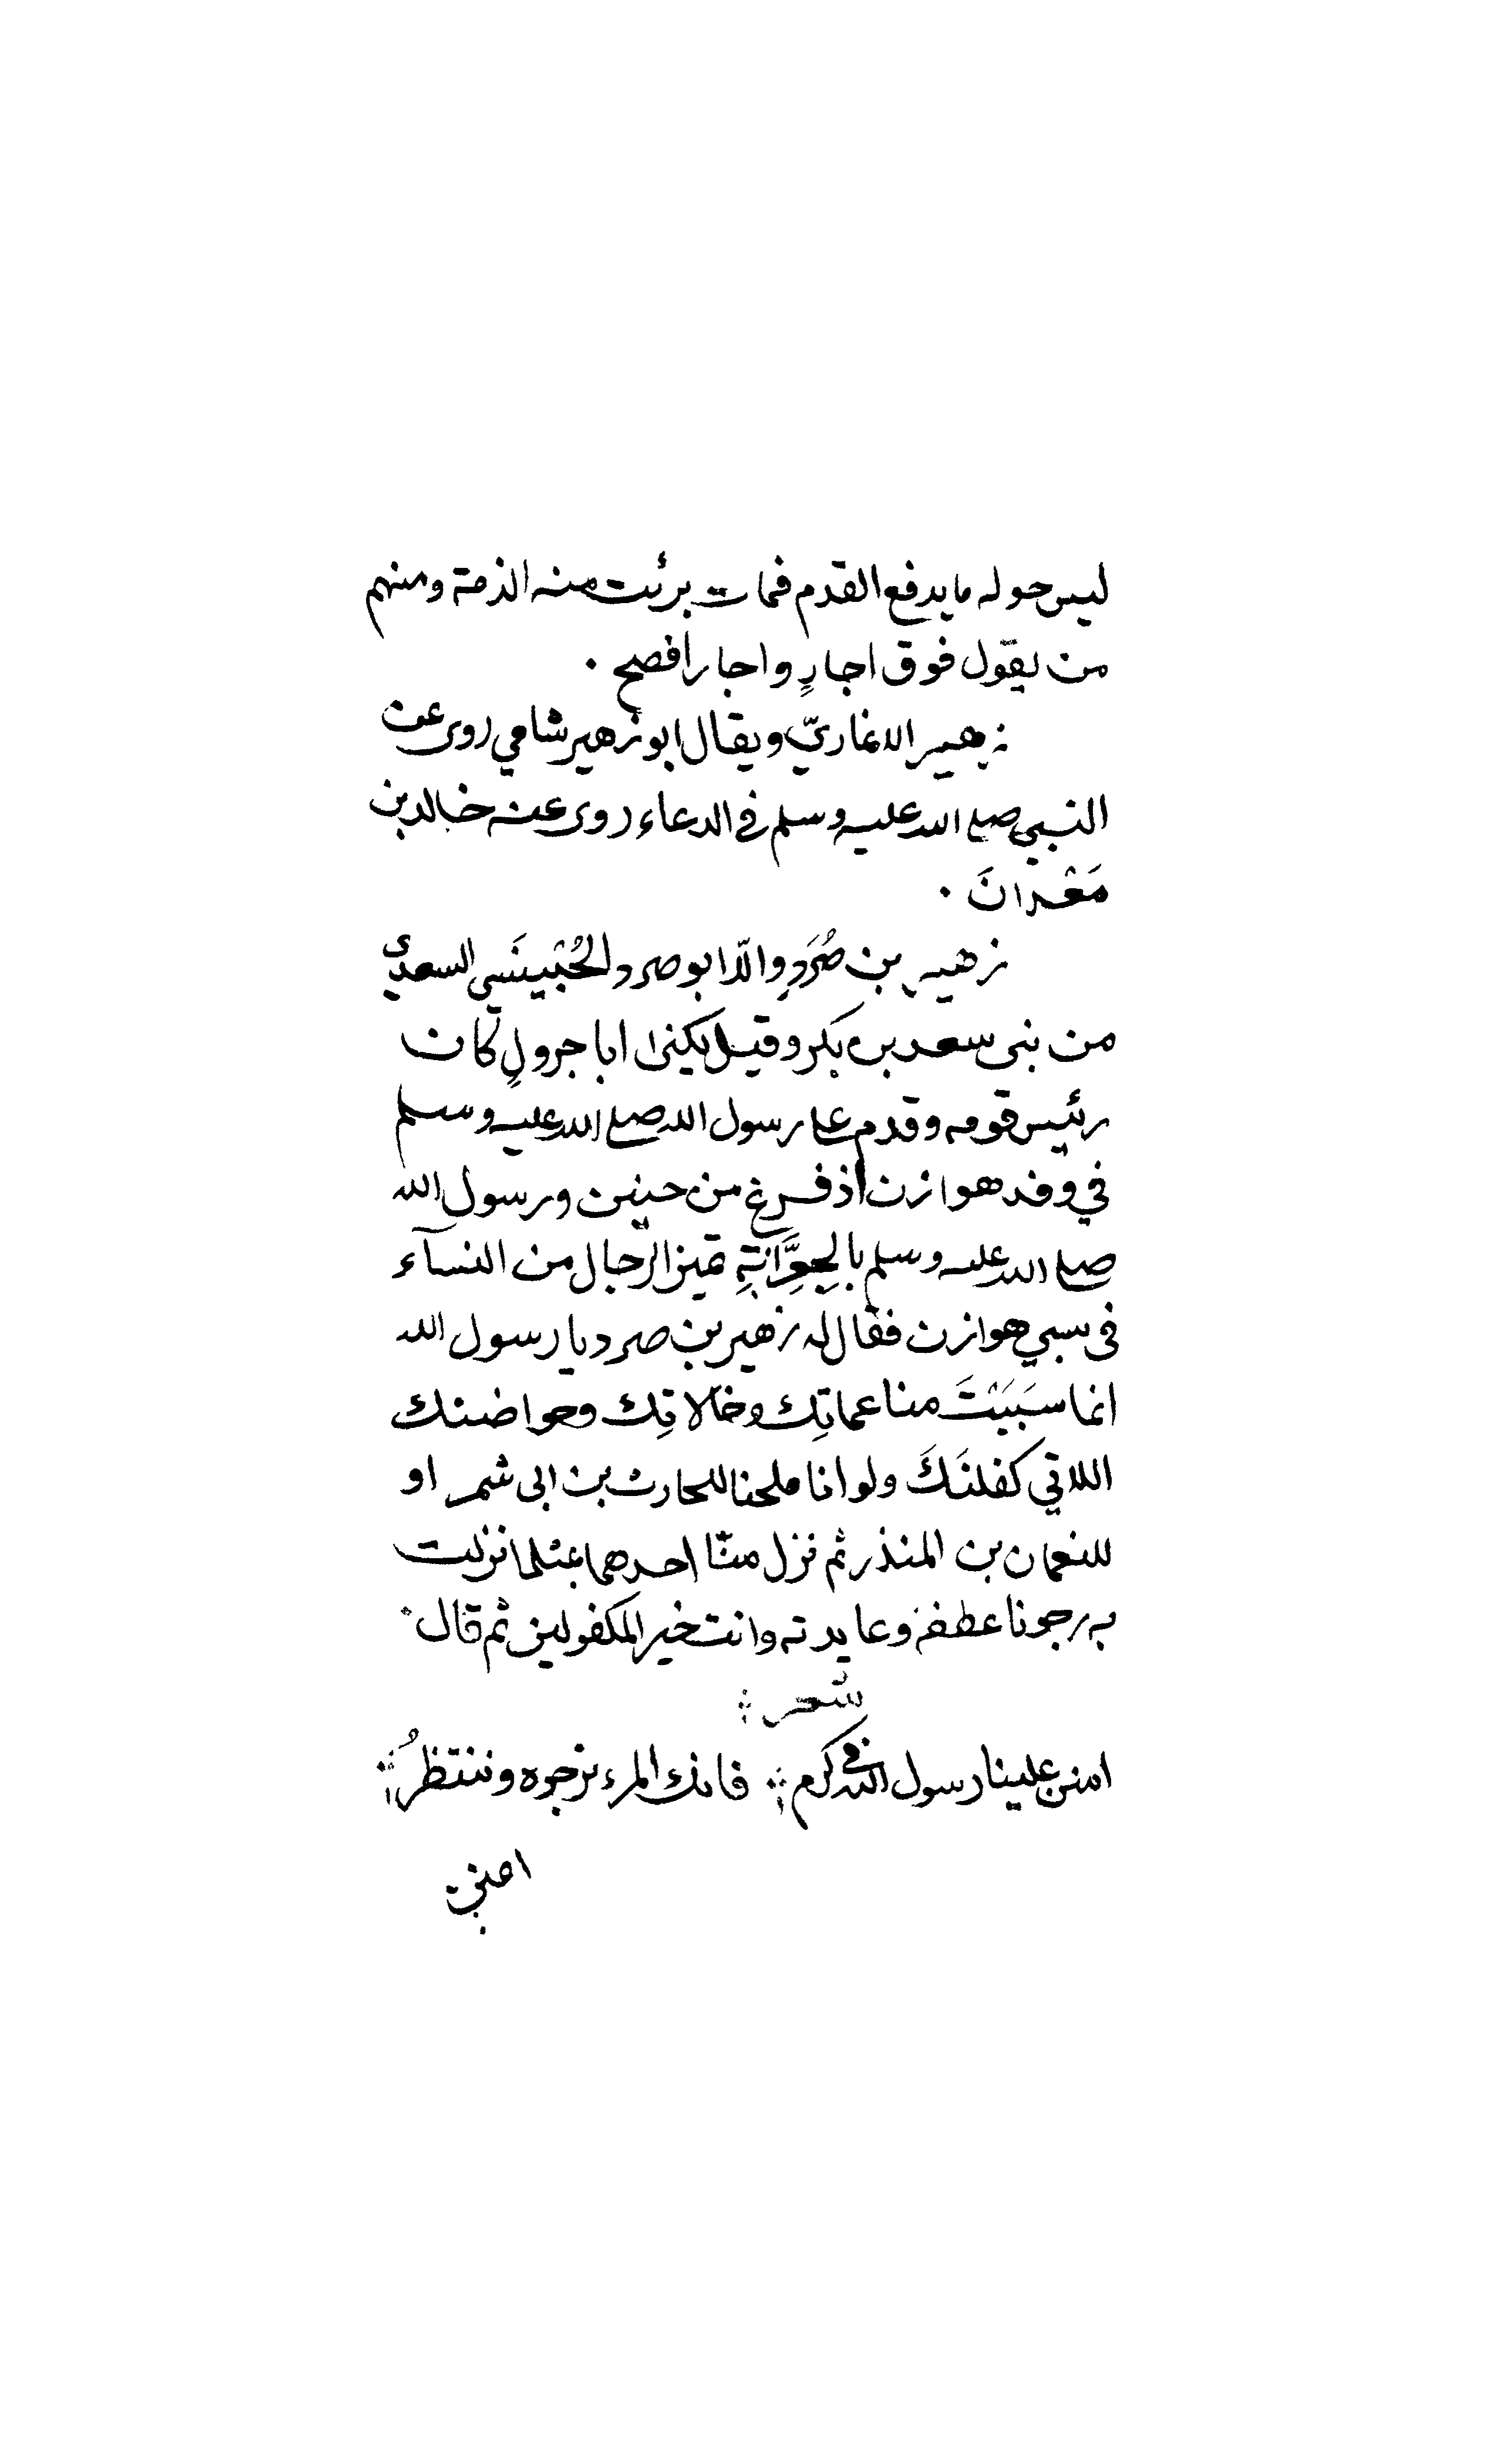 ليس حوله ما يدفع القدم فمات برئت منه الذمة ومنهم
من يقول فوق اجارٍ واجار افصح .
زهير الانماريّ ويقال ابو زهير شامي روى عن
النبي صلى الله عليه وسلم في الدعاء روى عنه خالد بن
مَعْدانَ .
زهير بن صُرَدٍ ابو صرد الجُشَمي السعدي
من بني سعد بن بكر وقيل يكنى ابا جرولٍ كان
رئيس قومه وقدم على رسول الله صلى الله عليه وسلم
في وفد هوازن اذ فرغ من حنين ورسول الله
صلى الله عليه وسلم بالجِعِرَّانَةِ يميز الرجال من النسآء
في سبي هوازن فقال له زهير بن صرد يا رسول الله
انما سَبَيْتَ منا عماتِك وخالاتِك وحواضنك
اللاتي كفلنَكَ ولو انا ملحنا للحارث بن ابي شمر او
للنعمان بن المنذر ثم نزل منّا احدهما بمثلما نزلت
به رجونا عطفه وعايدته وانت خير المكفولين ثم قال
شعر
امنن علينا رسول الله في كرم فانك المرء نرجوه وننتظرُ
امنن